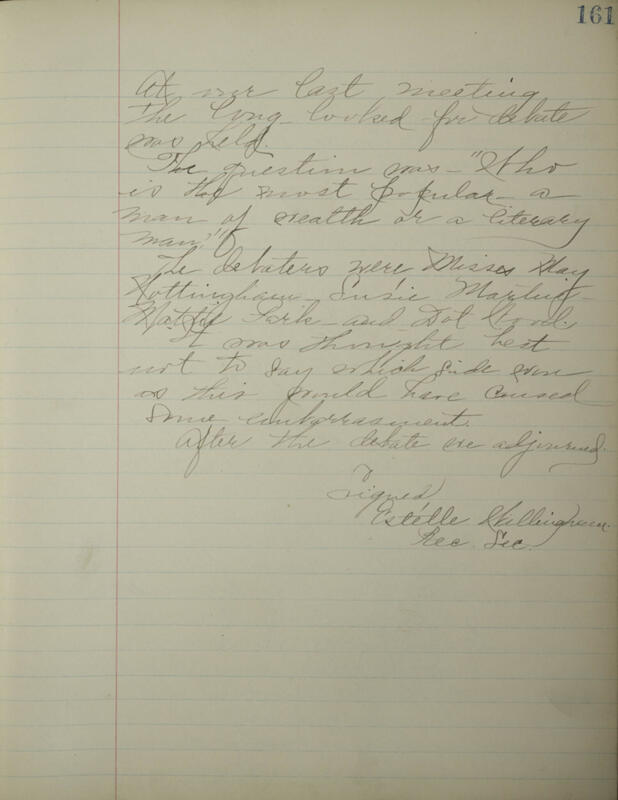 161
At our last meeting
the long looked for debate
was held.
The question was - "Who
is the most popular - a
man of wealth or a literary
man?"
The debaters were Misses May
Nottingham - Susie Martin -
Mattie Park - and Dot Wood.
It was thought best
not to say which side won
as this would have caused
some embarrasment.
After the debate we adjourned.
Signed
Estelle
Rec. Sec.